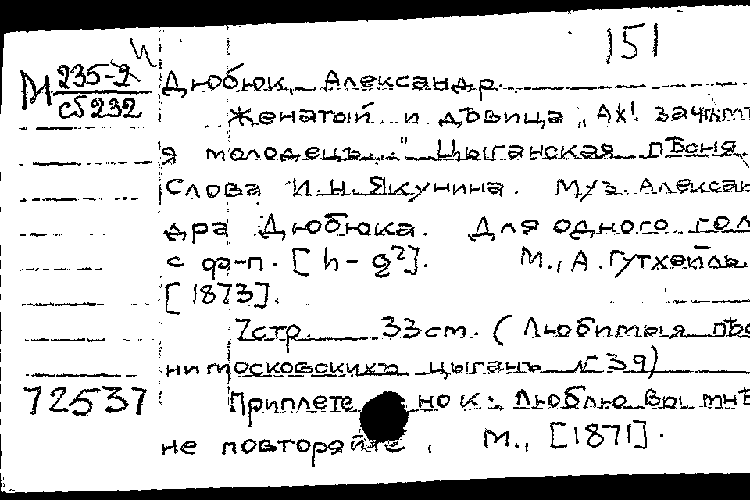 151
М 235-2
сб 232
Дюбюк, Александр.
Женатый и дѣвица „Ах! зачѣмъ
я молодецъ..." Цыганская пѣсня.
Слова И.Н. Якунина. Муз. Алексан
дра Дюбюка. Для одного гол
с ф-п. [h – g²]. М., А. Гутхейль.
[1873].
7 стр. 33 см. (Любимыя пѣс
ни московскихъ цыганъ №39)
72537 Приплете нок: Люблю вы мнѣ
не повторяйте, М., [1871].